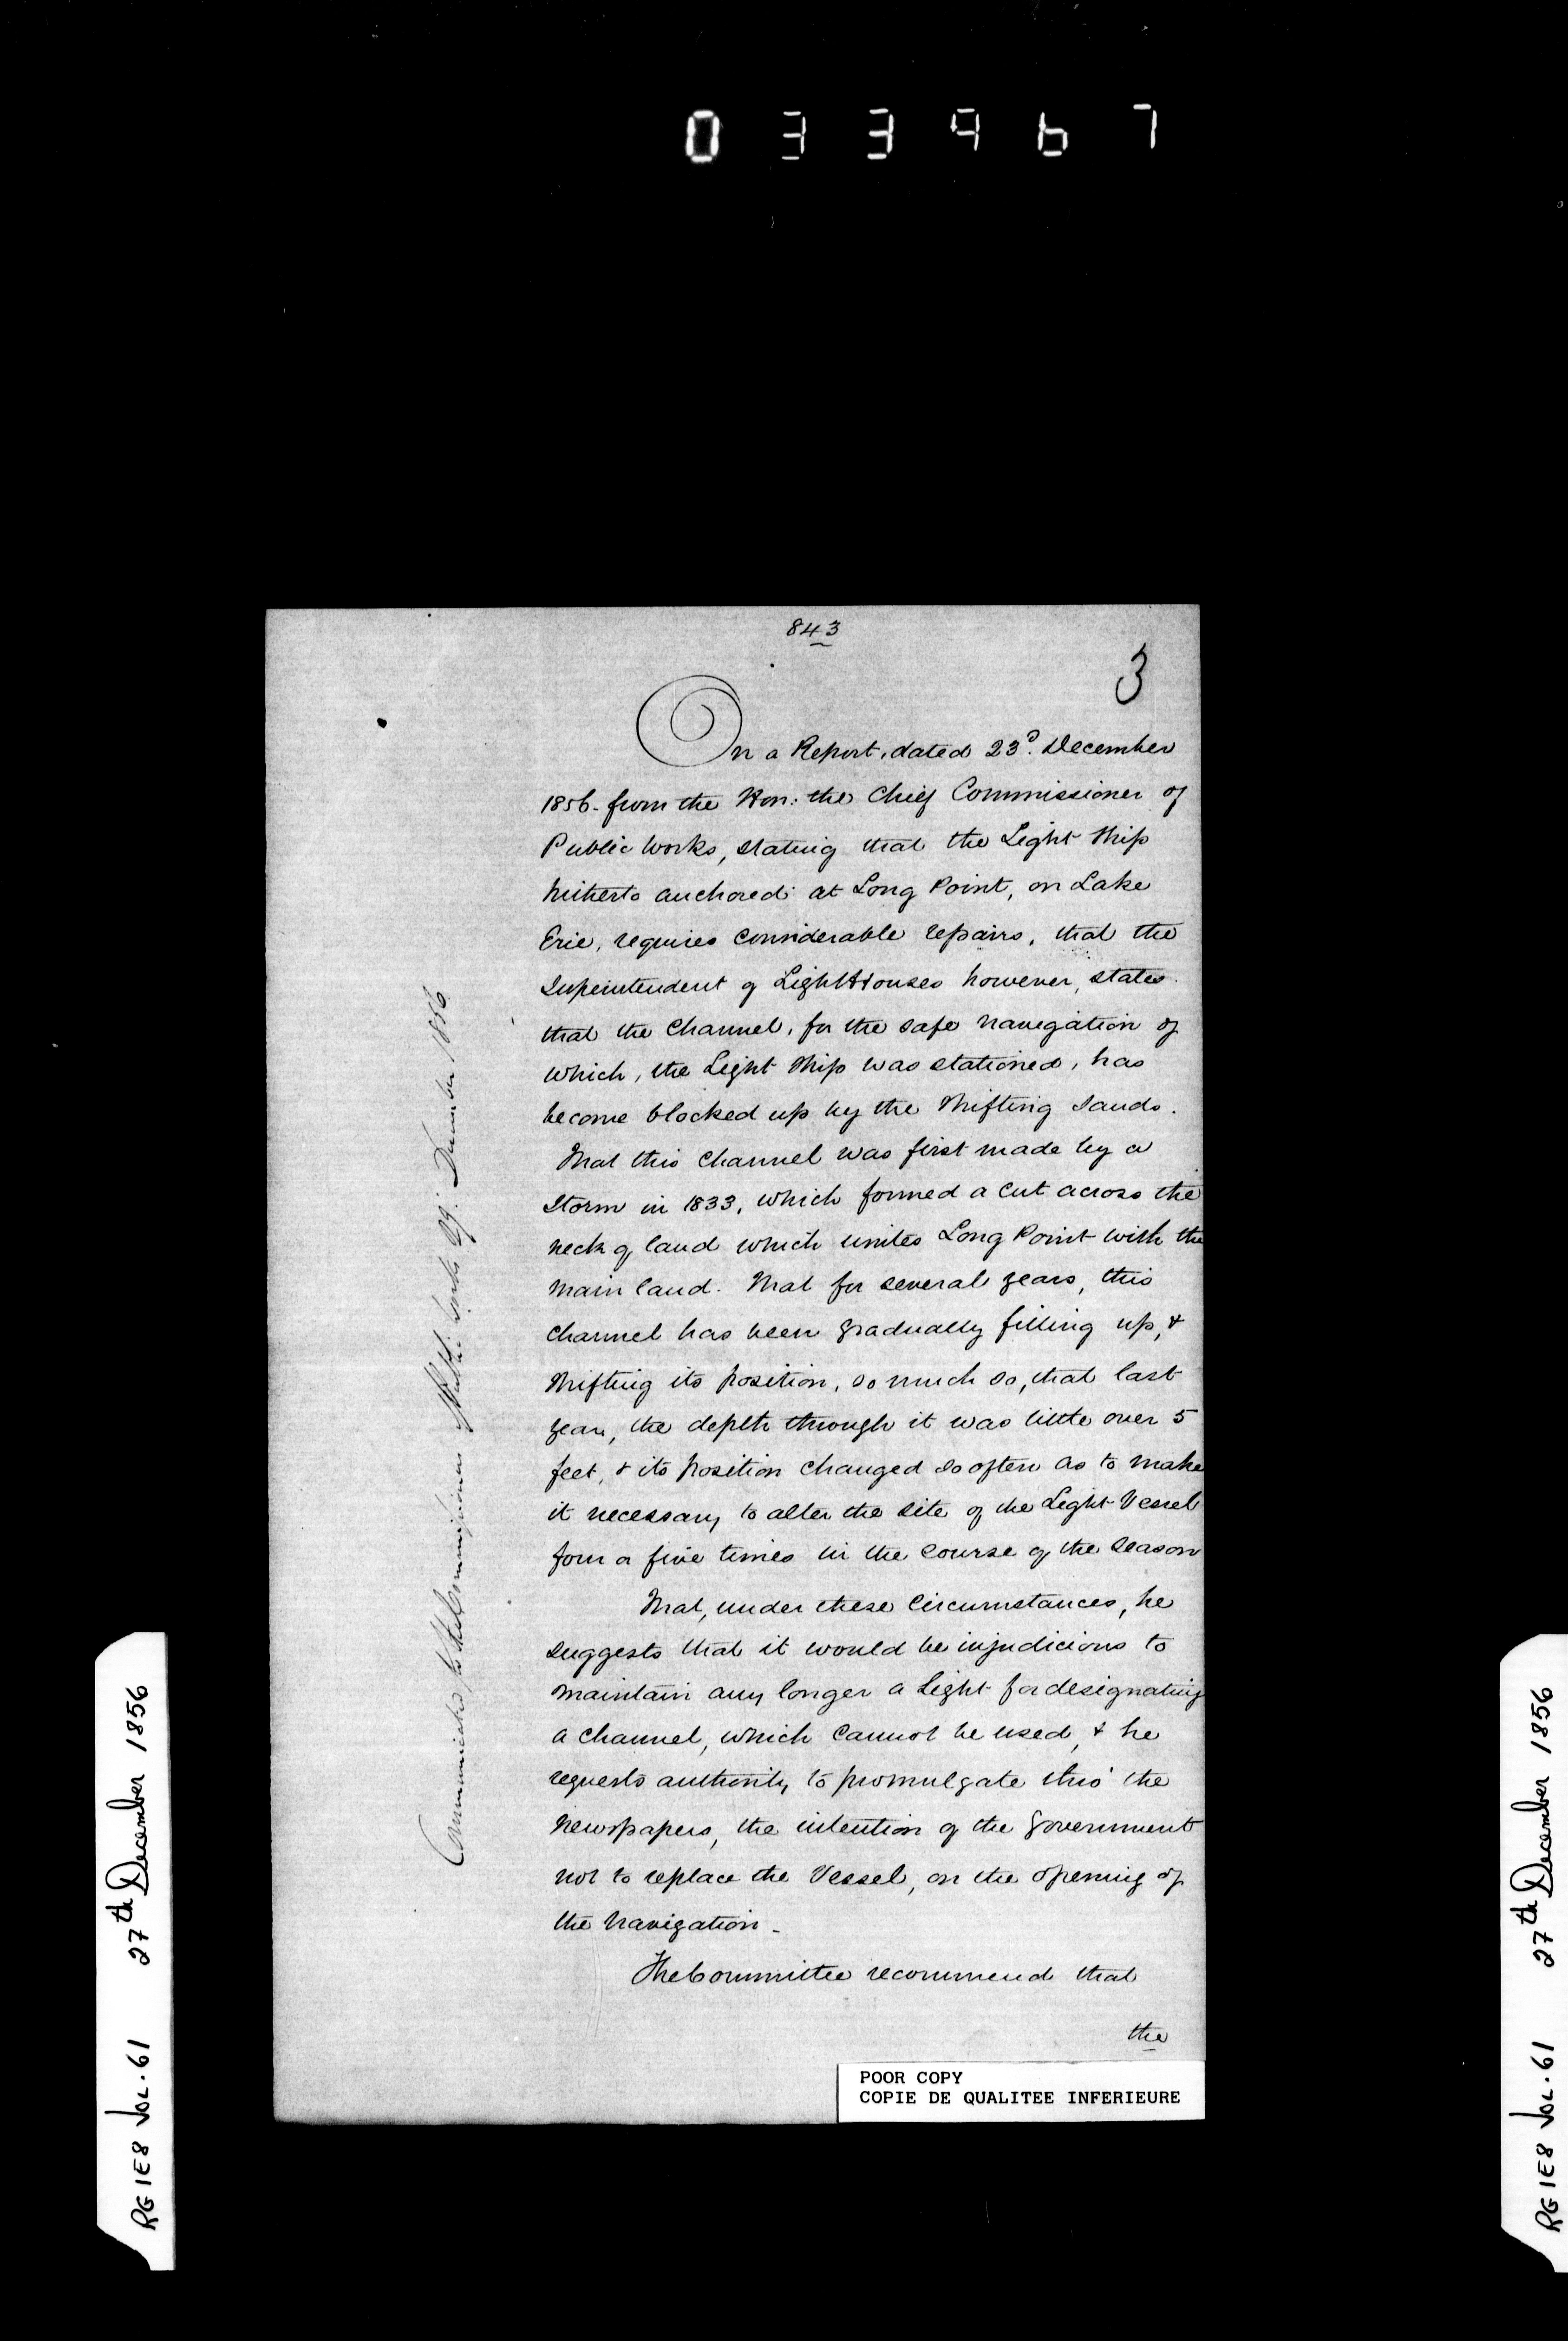 033967
843
3
On a Report, dated 23d. December
1856 - from the Hon: the Chief Commissioner of
Public Works, stating that the Light Ship
hitherto anchored at Long Point, on Lake
Erie, requires considerable repairs, that the
Superintendent of Light Houses however, states
that the Channel, for the safe navigation of
which, the Light Ship was stationed, has
become blocked up by the Shifting Sands.
That this Channel was first made by a
Storm in 1833, which formed a cut across the
neck of land which unites Long Point with the
main land. That for several years, this
Channel has been gradually filling up, &
shifting its position, so much so, that last
year, the depth through it was little over 5
feet, & its position changed so often as to make
it necessary to alter the site of the Light Vessel
four or five times in the course of the Season
That, under these Circumstances, he
suggests that it would be injudicious to
maintain any longer a Light for designating
a Channel, which cannot be used, & he
requests authority to promulgate thro' the
Newspapers, the intention of the Government
not to replace the Vessel, on the opening of
the Navigation -
The Committee recommend that
the
Communicated to the Commissioners Public Works 29. December 1856
POOR COPY
COPIE DE QUALITEE INFERIEURE
RG 1E8 VOL. 61 27th December 1856
RG 1E8 VOL. 61 27th December 1856